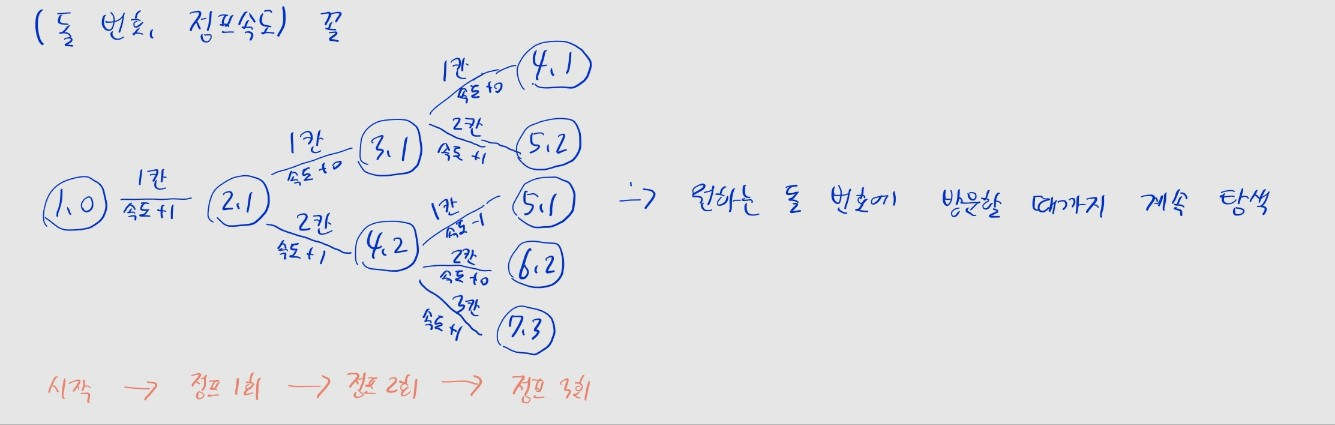 (돌 번호, 점프속도) 꼴
1칸
속도+0
4.1
2칸
속도+1
5.2
1칸
속도+0
3.1
1.0
1칸
속도+1
2.1
2칸
속도+1
4.2
1칸
속도-1
5.1
2칸
속도+0
6.2
3칸
속도+1
7.3
→ 원하는 돌 번호에 방문할 때까지 계속 탐색
시작 → 점프 1회 → 점프 2회 → 점프 3회